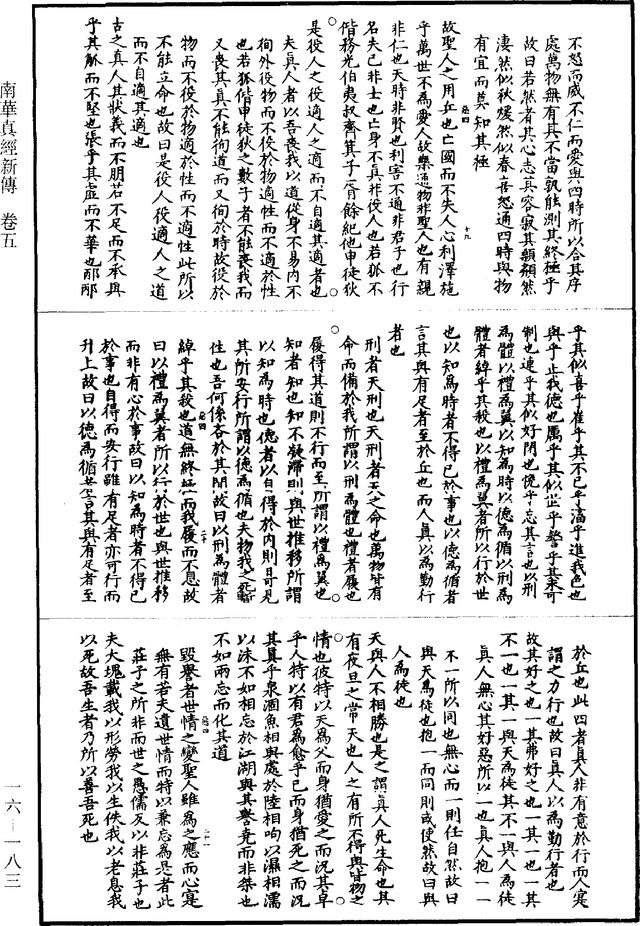 不怒而威不仁而愛與四時所以合其序
處萬物無有其不當孰能測其終極乎
故曰若然者其心志其容寂其顙頯然
淒然似秋煖然似春喜怒通四時與物
有宜而莫知其極
故聖人之用兵也亡國而不失人心利澤施
乎萬世不為愛人故樂通物非聖人也有親
非仁也天時非賢也利害不通非君子也行
名失己非士也亡身不真非役人也若狐不
偕務光伯夷叔齊箕子胥餘紀他申徒狄
是役人之役適人之適而不自適其適者也
夫真人者以吾喪我以道從身不易內不
徇外役物而不役於物適性而不適於性
也若狐偕申徒狄之數子者不能喪我而
又喪其真不能徇道而又徇於時故役於
物而不役於物適於性而不適性此所以
不能立命也故曰是役人役適人之道
而不自適其適也
古之真人其狀義而不朋若不足而不承與
乎其觚而不堅也張乎其虛而不華也邴邴
乎其似喜乎崔乎其不已乎滀乎進我色也
與乎止我德也厲乎其似世乎謷乎其未可
制也連乎其似好閉也悗乎忘其言也以刑
為體以禮為翼以知為時以德為循以刑為
體者綽乎其殺也以禮為翼者所以行於世
也以知為時者不得已於事也以德為循者
言其與有足者至於丘也而人真以為勤行
者也
刑者天刑也天刑者天之命也萬物皆有
命而備於我所謂以刑為體也禮者履也
履得其道則不行而至所謂以禮為翼也
知者知也知不凝滯則與世推移所謂
以知為時也德者以自得於內則目見
其所安行所謂以德為循也夫物我之死
性也吾何係吝於其間故曰以刑為體者
綽乎其殺也道無終極而我履而不息故
曰以禮為翼者所以行於世也與世推移
而非有心於事故曰以知為時者不得已
於事也自得而安行雖有足者亦可行而
升上故曰以德為循者言其與有足者至
於丘也此四者真人非有意於行而人寔
謂之力行也故曰真人以為勤行者也
故其好之也一其弗好之也一其一也一其
不一也一其一與天為徒其不一與人為徒
真人無心其好惡所以一也真人抱一一
不一所以同也無心而一則任自然故曰
與天為徒也抱一而同則或使然故曰與
人為徒也
天與人不相勝也是之謂真人死生命也其
有夜旦之常天也人之有所不得與皆物之
情也彼特以天為父而身猶愛之而況其卓
乎人特以有君為愈乎己而身猶死之而況
其真乎泉涸魚相與處於陸相呴以濕相濡
以沫不如相忘於江湖與其譽堯而非桀也
不如兩忘而化其道
毀譽者世情之變聖人雖為之應而心寔
無有若夫遺世情而特以兼忘為是者此
莊子之所非而世之愚儒反以非莊子也
夫大塊載我以形勞我以生佚我以老息我
以死故吾生者乃所以善吾死也
南華真經新傳 卷五
一六─一八三